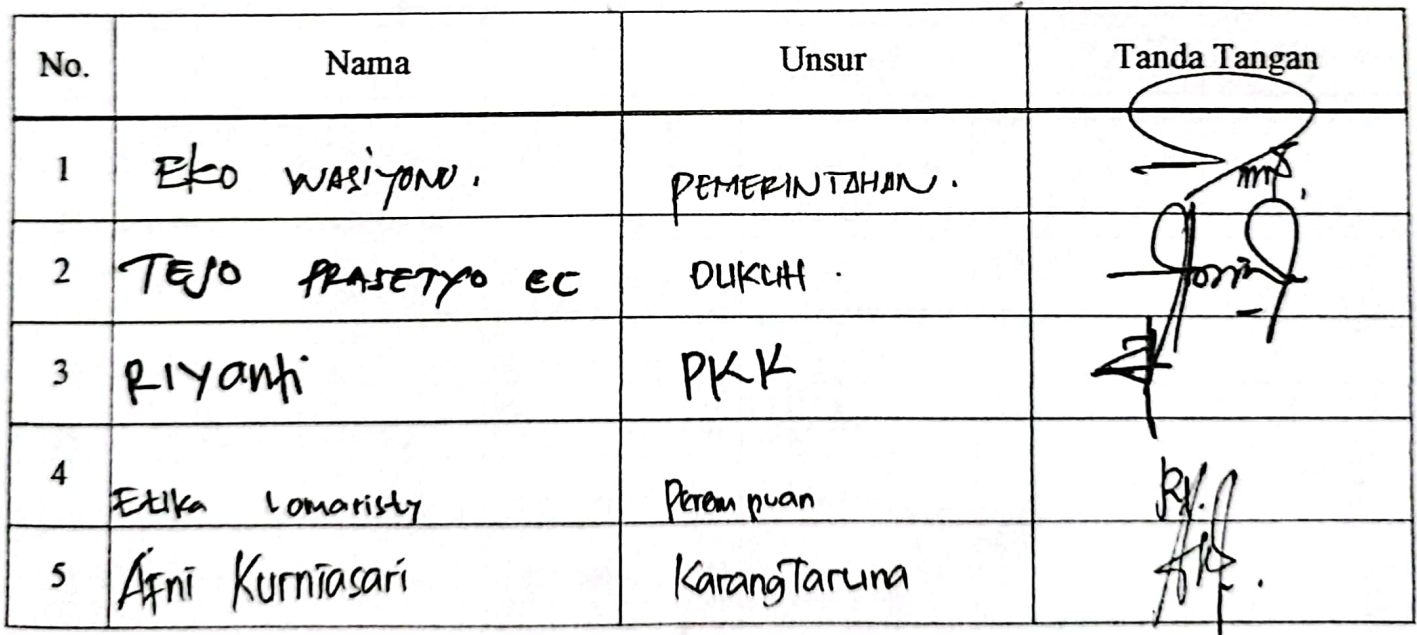 No. Nama Unsur Tanda Tangan
1 EKO WASIYONO. PEMERINTAHAN.
2 TEJO PRASETYO EC DUKUH.
3 RIYanti PKK
4 Etika Lomaristy Perempuan
5 Afni Kurniasari KarangTaruna